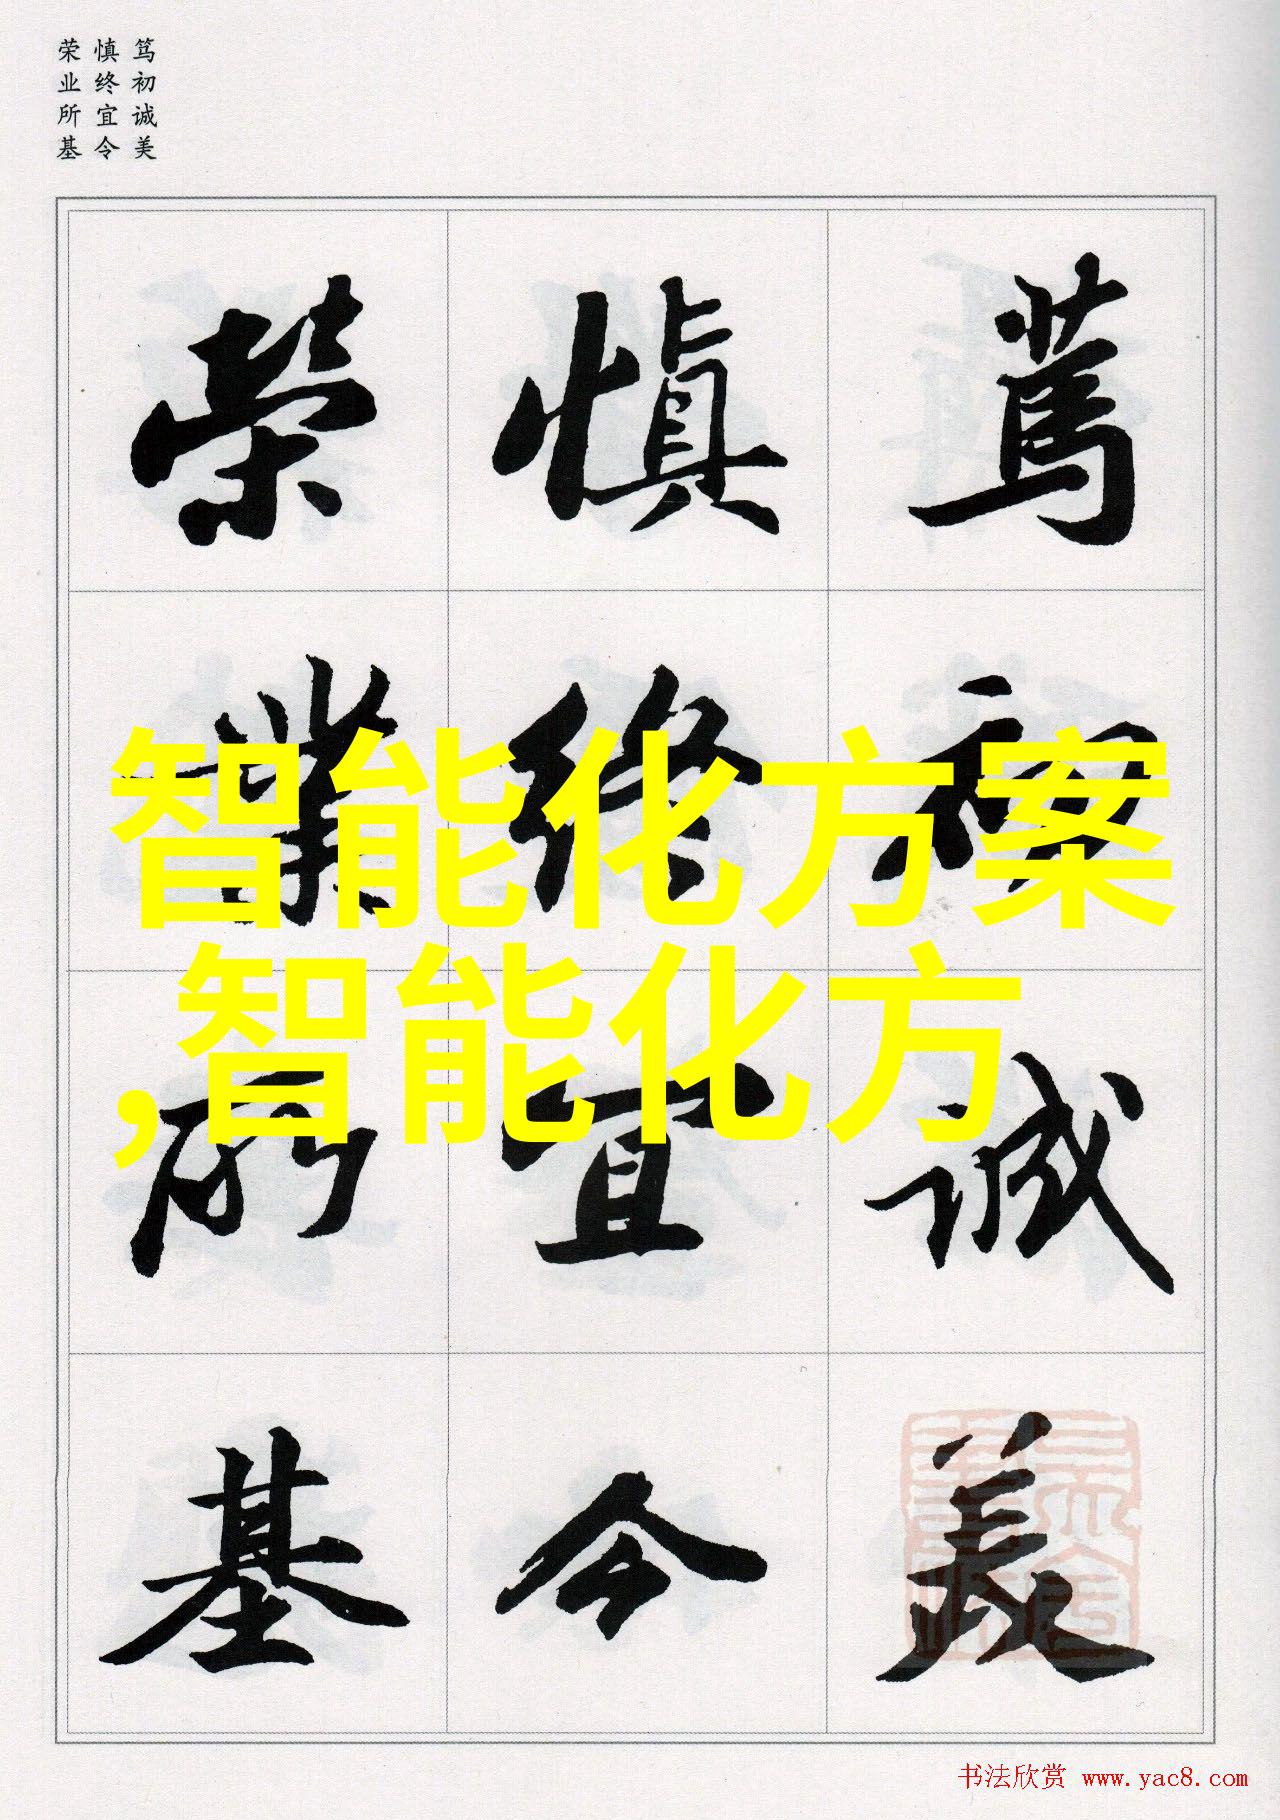 笃初诚美
慎终宜令
荣业所基
篤初诚美
慎终宜令
榮業所基
智能化方案
,智能化方
书法欣赏 www.yac8.com